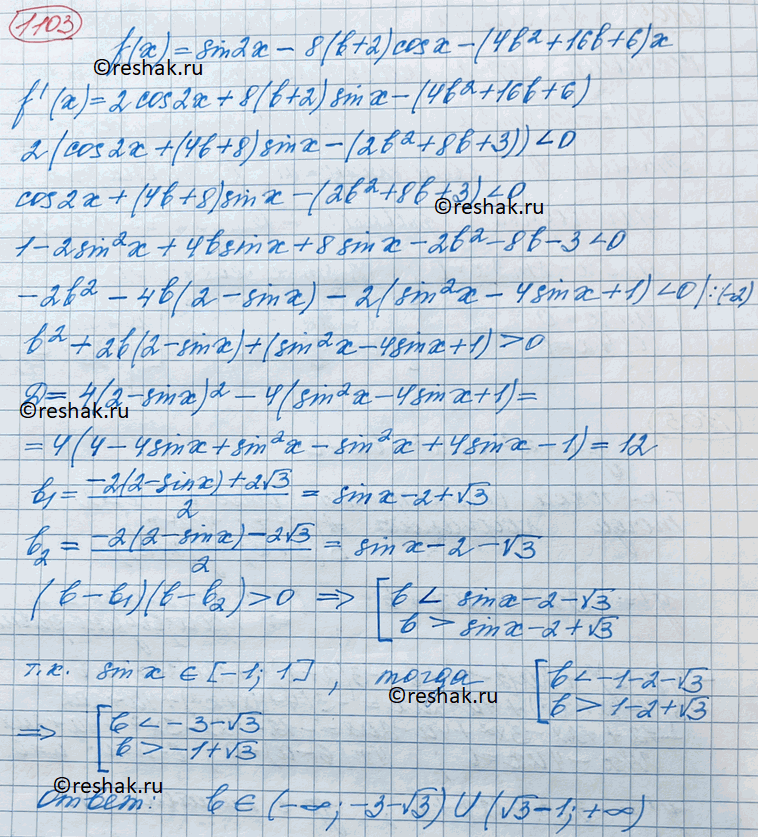 1103
f(x) = sin2x − 8(b+2)cosx − (4b²+16b+6)x
©reshak.ru
f'(x) = 2cos2x + 8(b+2)sinx − (4b²+16b+6)
2(cos2x + (4b+8)sinx − (2b²+8b+3)) < 0
cos2x + (4b+8)sinx − (2b²+8b+3) < 0
©reshak.ru
1 − 2sin²x + 4bsinx + 8sinx − 2b² − 8b − 3 < 0
−2b² − 4b(2−sinx) − 2(sin²x − 4sinx + 1) < 0 |:(−2)
b² + 2b(2−sinx) + (sin²x − 4sinx + 1) > 0
Д = 4(2−sinx)² − 4(sin²x − 4sinx + 1) =
©reshak.ru
= 4(4 − 4sinx + sin²x − sin²x + 4sinx − 1) = 12
b₁ = (−2(2−sinx)+2√3)/2 = sinx − 2 + √3
b₂ = (−2(2−sinx)−2√3)/2 = sinx − 2 − √3
(b−b₁)(b−b₂) > 0 ⇒ [ b < sinx−2−√3
b > sinx−2+√3
т.к. sinx ∈ [−1; 1], тогда [ b < −1−2−√3
b > 1−2+√3
©reshak.ru
⇒ [ b < −3−√3
b > −1+√3
©reshak.ru
Ответ: b ∈ (−∞; −3−√3) ∪ (√3−1; +∞)